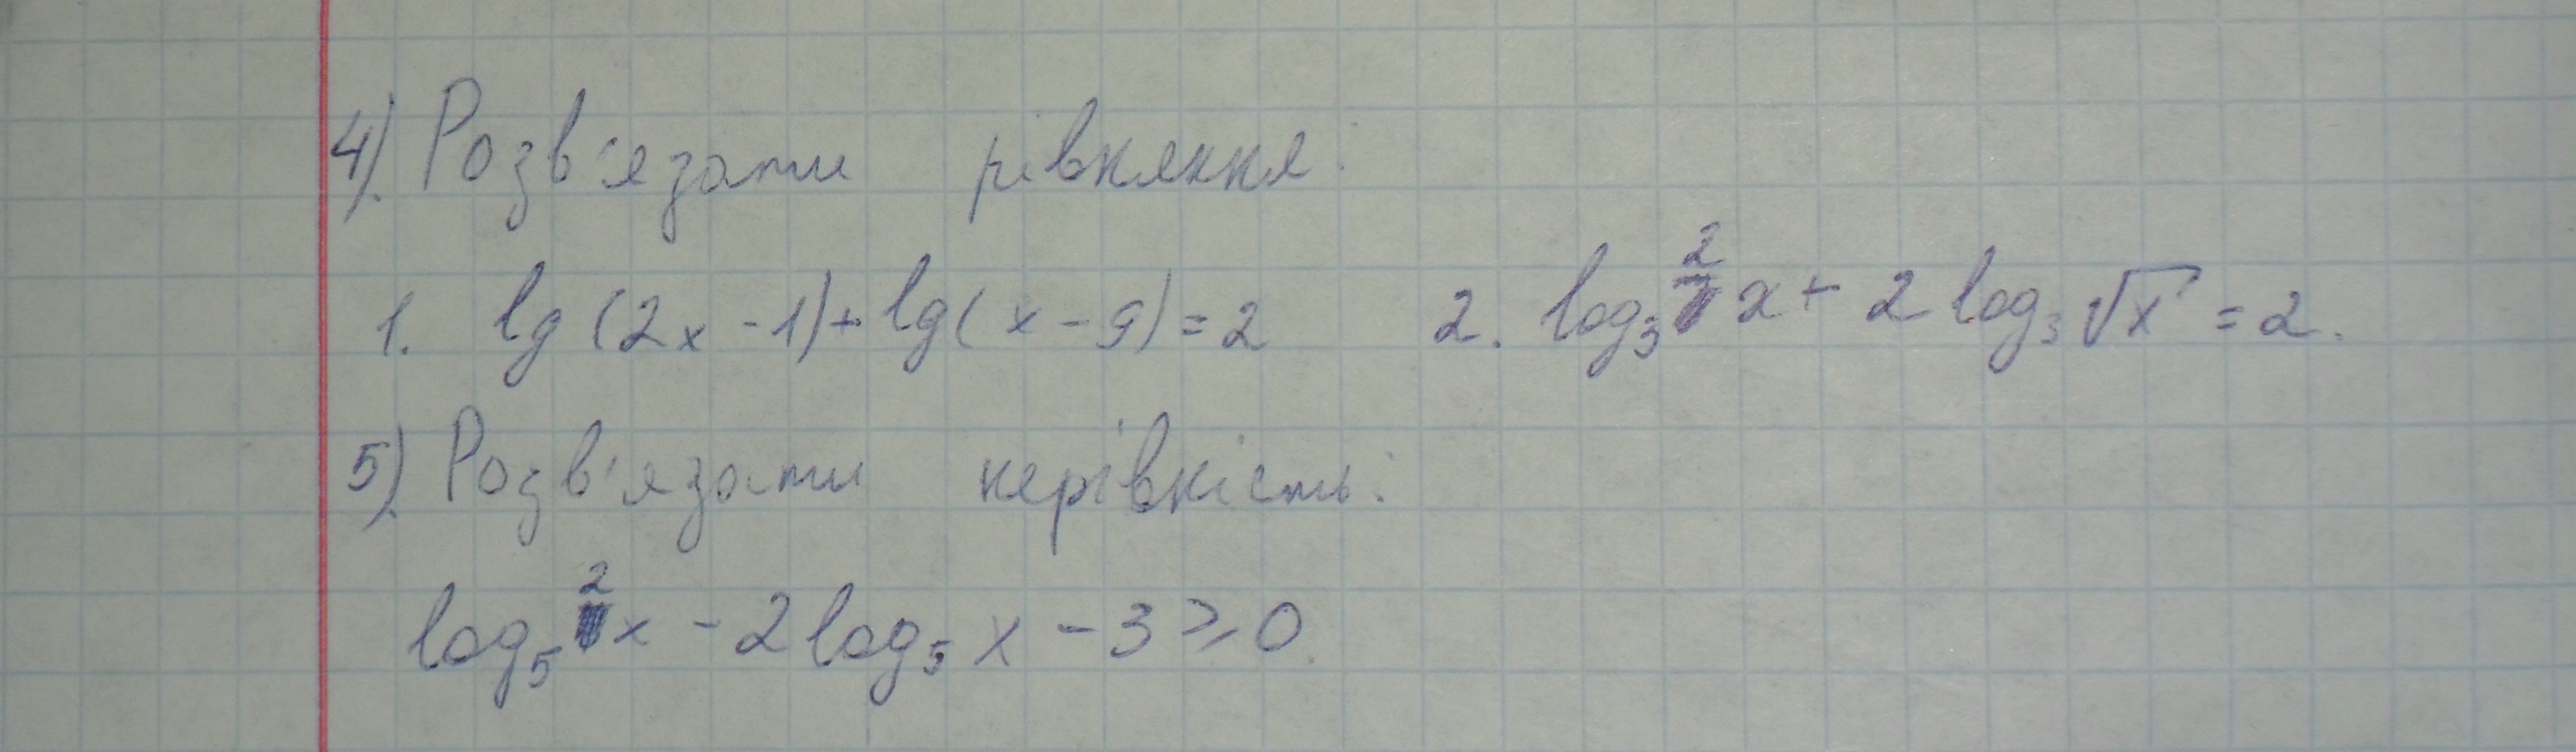 4). Розв'язати рівняння:
1. lg (2x - 1) + lg (x - 9) = 2 2. log₃² x + 2 log₃ √x = 2.
5). Розв'язати нерівність:
log₅² x - 2 log₅ x - 3 ⩾ 0.